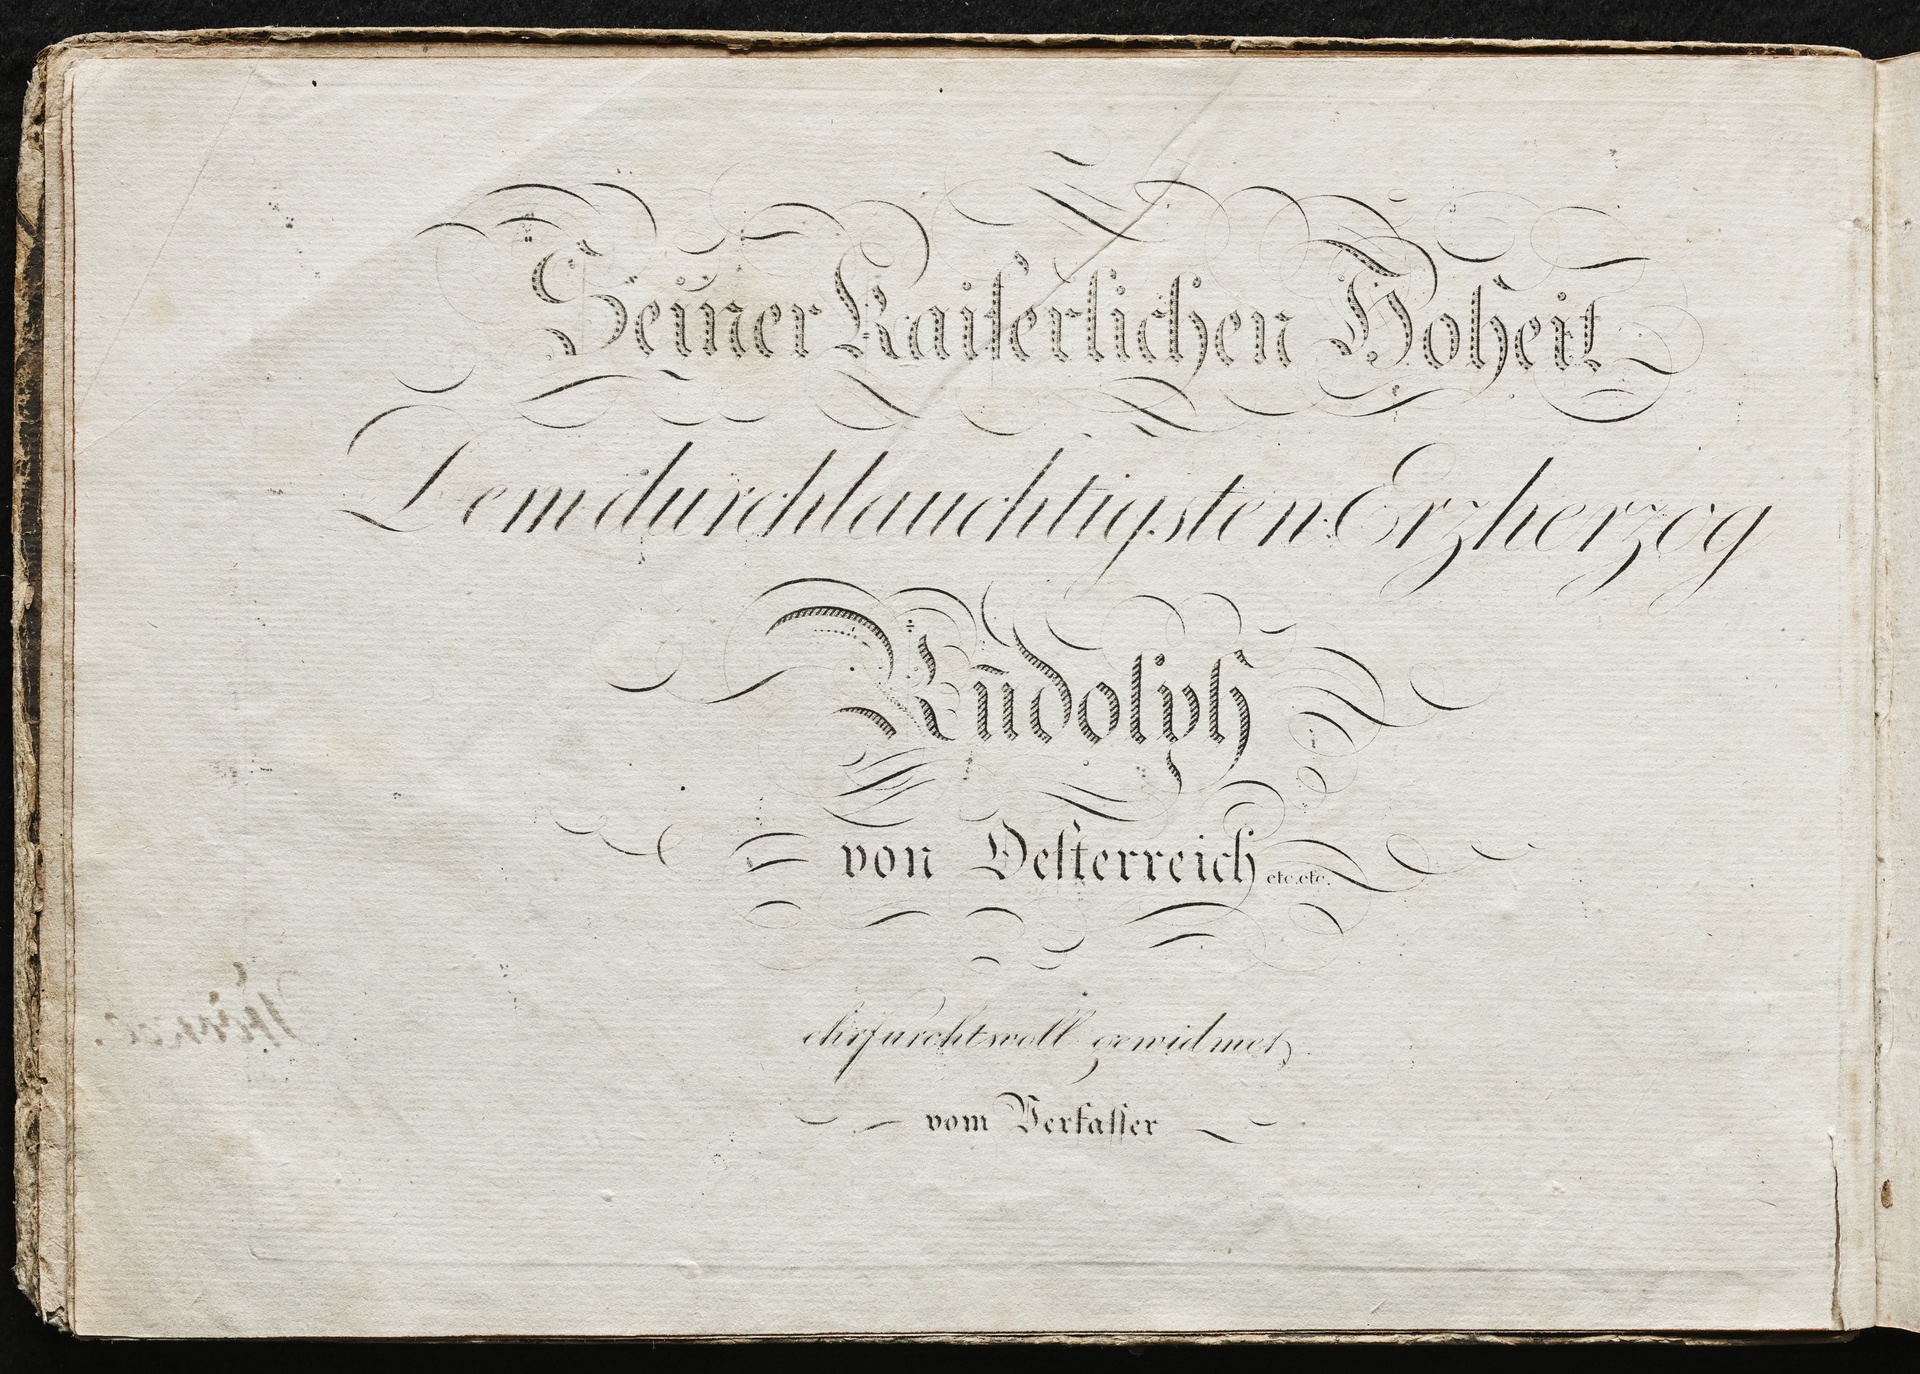 Seiner Kaiserlichen Hoheit
Dem durchlauchtigsten Erzherzog
Rudolph
von Oesterreich etc. etc.
ehrfurchtsvoll gewidmet
vom Verfasser